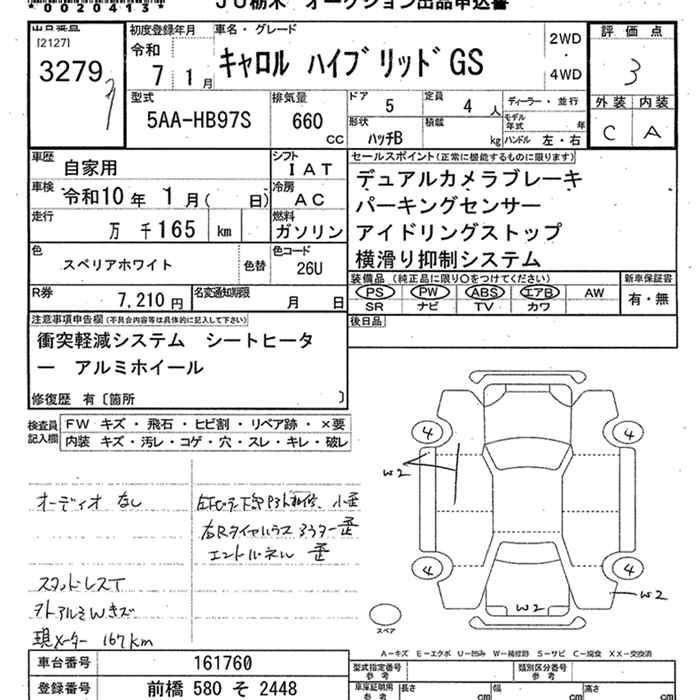 *0020413*
JU栃木 オークション出品申込書
出品番号
[2127]
3279
初度登録年月
令和
7 1月
車名・グレード
キャロル ハイブリッド GS
2WD
・
4WD
評価点
3
外装 内装
C A
型式
5AA-HB97S
排気量
660
cc
ドア 5
定員 4 人
ディーラー・並行
形状
ハッチB
積載
kg
モデル年式 年
ハンドル 左・右
車歴
自家用
シフト
IAT
車検
令和10年 1月( 日)
冷房
AC
走行
万 千165 km
燃料
ガソリン
色
スペリアホワイト
色替
色コード
26U
R券
7,210円
名変通知期限
月 日
セールスポイント(正常に機能するものに限ります)
デュアルカメラブレーキ
パーキングセンサー
アイドリングストップ
横滑り抑制システム
装備品(純正品に限り○をつけてください)
PS PW ABS エアB AW
SR ナビ TV カワ
新車保証書
有・無
後日品
注意事項申告欄(不具合内容等は具体的に記入して下さい)
衝突軽減システム シートヒータ
ー アルミホイール
修復歴 有〔箇所 〕
検査員
記入欄
FW キズ・飛石・ヒビ割・リペア跡・×要
内装 キズ・汚レ・コゲ・穴・スレ・キレ・破レ
オーディオなし
小歪
右Rタイヤハウスアウター歪
エンドパネル 歪
スタッドレスT
外アルミWキズ
現メーター 167km
4
4
4
4
W2
W2
W2
スペア
A-キズ E-エクボ U-凹み W-補修跡 S-サビ C-腐食 XX-交換済
車台番号 161760
登録番号 前橋 580 そ 2448
型式指定番号
参考
類別区分番号
参考
車庫証明用
参考
長さ cm
幅 cm
高さ cm